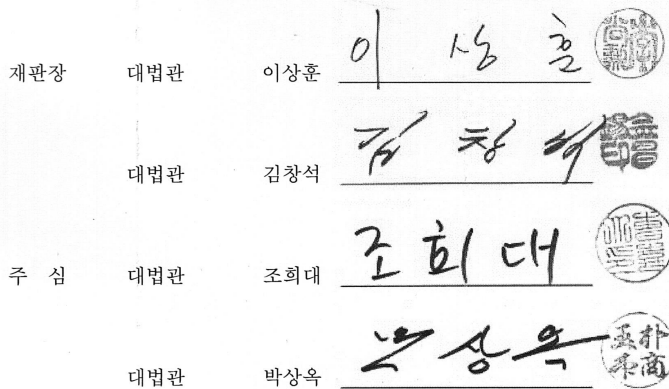 재판장 대법관 이상훈 이 상 훈
대법관 김창석 김 창 석
주 심 대법관 조희대 조 희 대
대법관 박상옥 박 상 옥